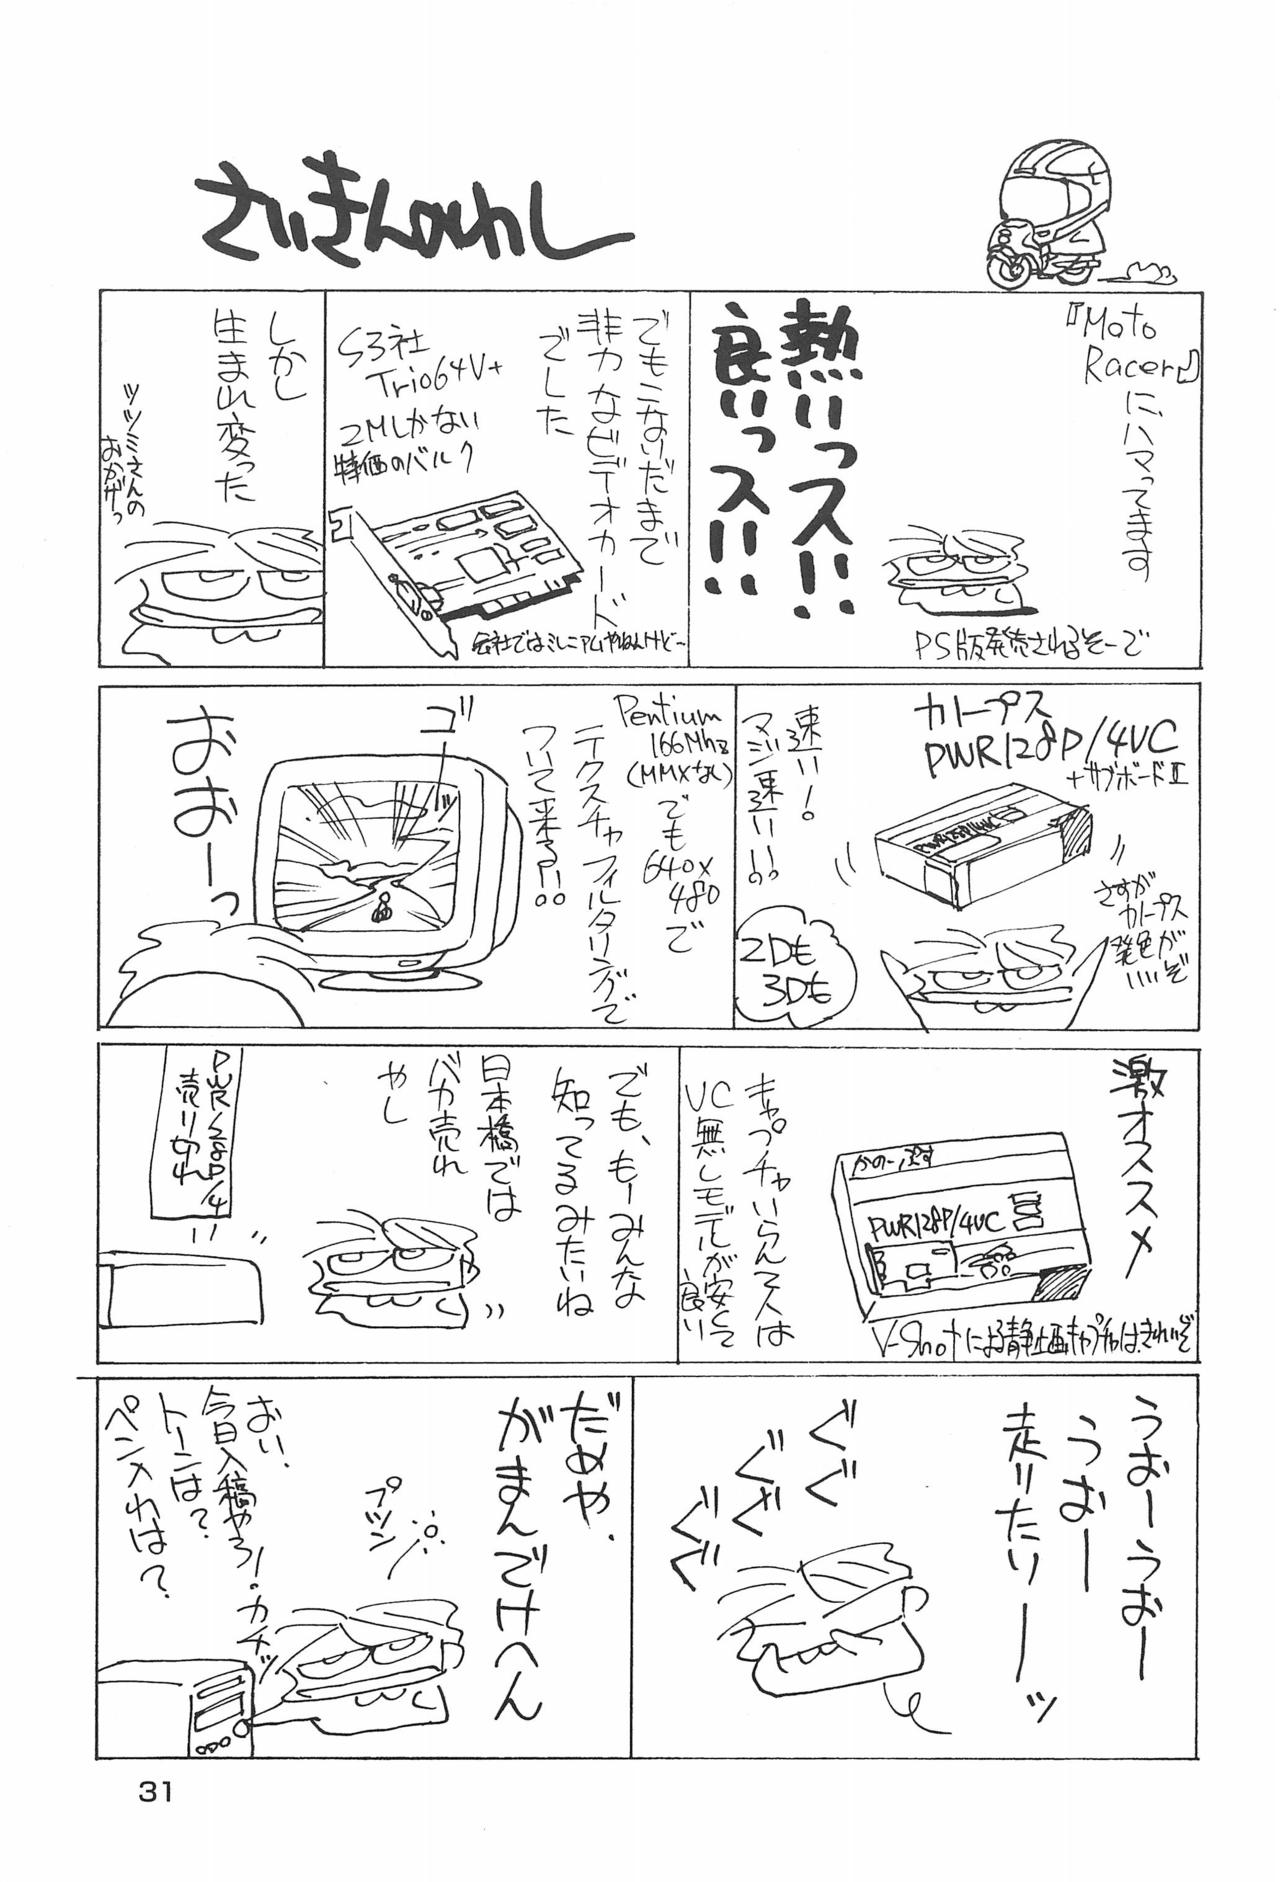 さいきんのわし
『Moto
Racer』
にハマってます
熱いっス!!
良いっス!!
PS版発売されるそーで
でもこないだまで
非力なビデオカード
でした
S3社
Trio64V+
2Mしかない
特価のバルク
会社ではミレニアムやねんけどー
しかし
生まれ変った
ツツミさんの
おかげっ
カノープス
PWR128P/4VC
+サブボードⅡ
PWR128P/4VC
速い!
マジ速い!!。
さすが
カノープス
発色が
いいぞ
2Dも
3Dも
Pentium
166Mhz
(MMXなし)
でも
640×
480で
テクスチャフィルタリングで
ついて来る!?。
ゴ
おおーっ
激オススメ
かのーぷす
PWR128P/4VC
V-Shotによる静止画キャプチャはきれいぞ
キャプチャいらん人は
VC無しモデルが安くて
良い
でも、もーみんな
知ってるみたいね
日本橋では
バカ売れ
やし
PWR128P/4
売り切れ
うおーうおー
うおー
走りたりーーッ
ぐぐ
ぐぐ
ぐぐ
だめや、
がまんでけへん
プツン
おい、
今日入稿やろ!
トーンは?
ペン入れは?
カチッ
31